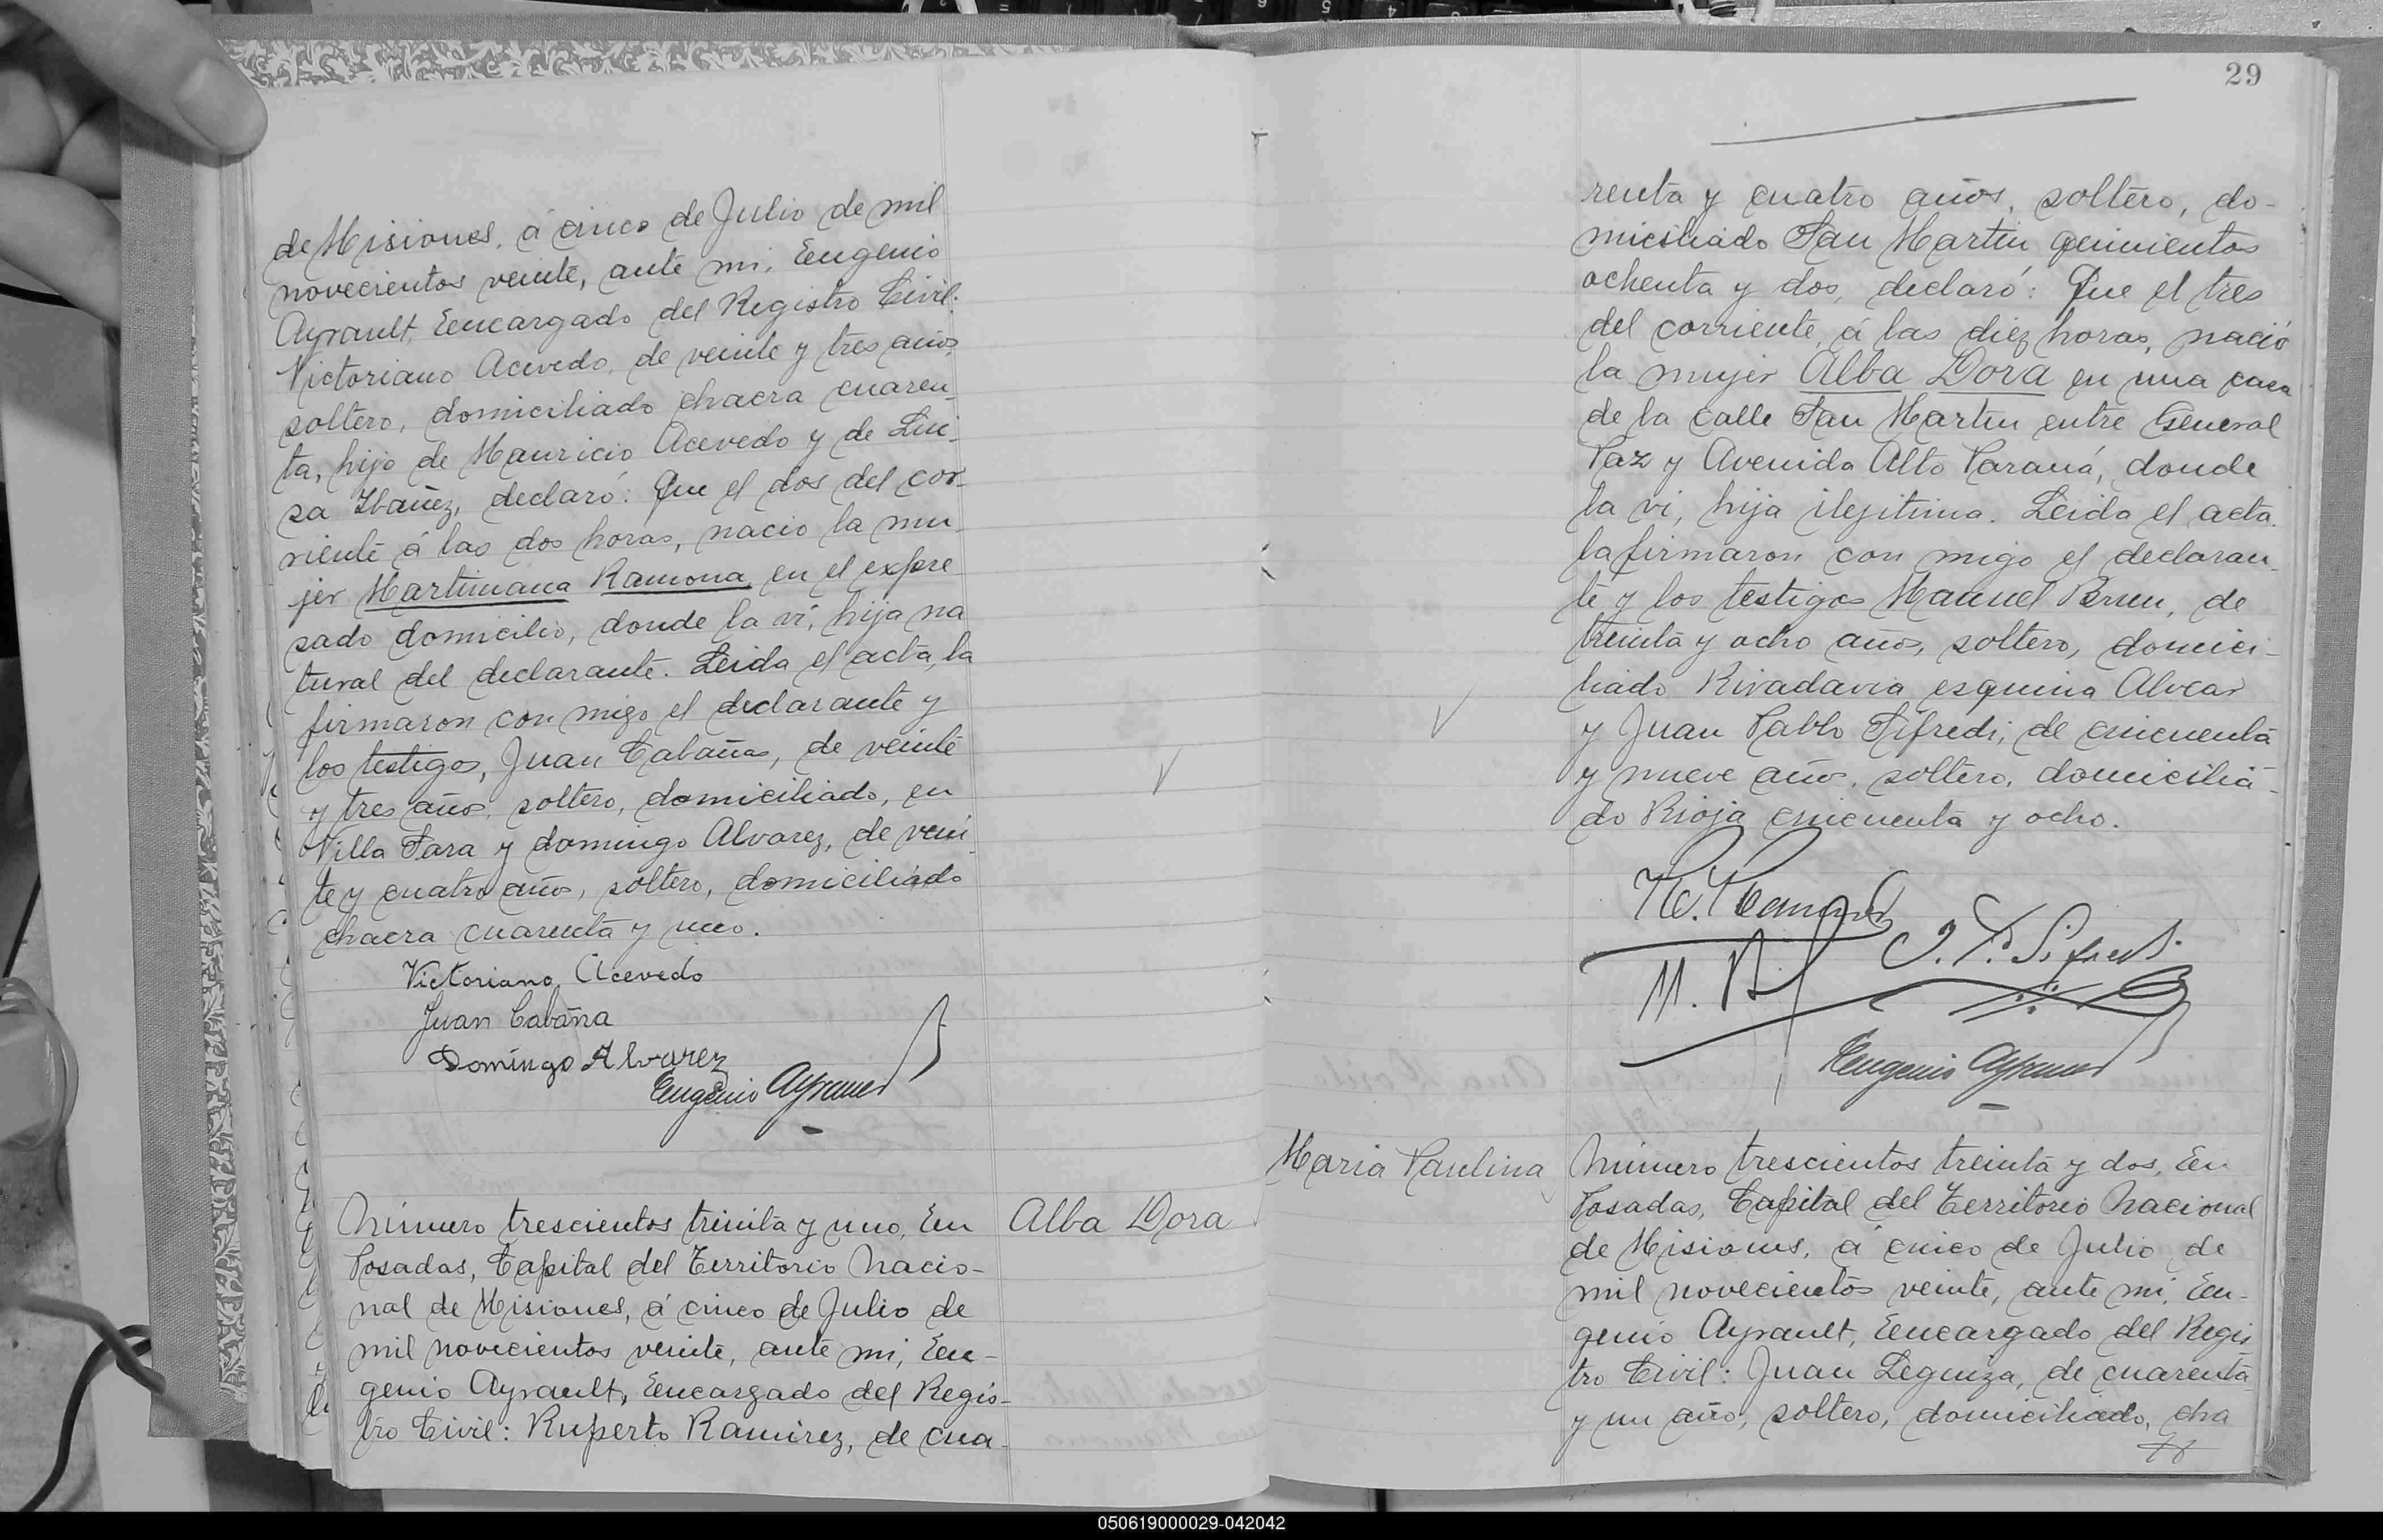 de Misiones, á cinco de Julio de mil
novecientos veinte, ante mi, Eugenio
Ayrault, Eencargado del Registro Civil:
Victoriano Acevedo, de veinte y tres años,
soltero, domiciliado chacra cuaren-
ta, hijo de Mauricio Acevedo y de Lui-
sa Ibañez, declaró: Que el dos del cor-
riente á las dos horas, nacio la mu-
jer Martimana Ramona en el expre-
sado domicilio, donde la vi, hija na
tural del declarante. Leida el acta, la
firmaron con migo el declarante y
los testigos, Juan Cabañas, de veinte
y tres años, soltero, domiciliado, en
Villa Sara y domingo Alvarez, de vein-
te y cuatro años, soltero, domiciliado
chacra cuarenta y uno.
Victoriano Acevedo
Juan Cabaña
Domingo Alvarez
Eugenio Ayrault
Número trescientos treinta y uno, En
Posadas, Capital del Territorio Nacio-
nal de Misiones, á cinco de Julio de
mil novecientos veinte, ante mi, Eu-
genio Ayrault, Eencargado del Regis-
tro Civil: Ruperto Ramirez, de cua-
Alba Dora
29
renta y cuatro años, soltero, do-
miciliado San Martin quinientos
ochenta y dos, declaró: Que el tres
del corriente, á las diez horas, nació
la mujer Alba Dora en una casa
de la calle San Martin entre General
Paz y Avenida Alto Paraná, donde
la vi, hija ilejitima. Leida el acta
la firmaron con migo el declaran-
te y los testigos Manuel Brun, de
treinta y ocho años, soltero, domici-
liado Rivadavia esquina Alvear
y Juan Pablo Sifredi, de cincuenta
y nueve años, soltero, domicilia-
do Rioja cincuenta y ocho.
R. Ramirez
J. P. Sifredi
Eugenio Ayrault
Maria Paulina
Número trescientos treinta y dos, En
Posadas, Capital del Territorio Nacional
de Misiones, á cinco de Julio de
mil novecientos veinte, ante mi, Eu-
genio Ayrault, Eencargado del Regis
tro Civil: Juan Leguiza, de cuarenta
y un año, soltero, domiciliado, cha
050619000029-042042